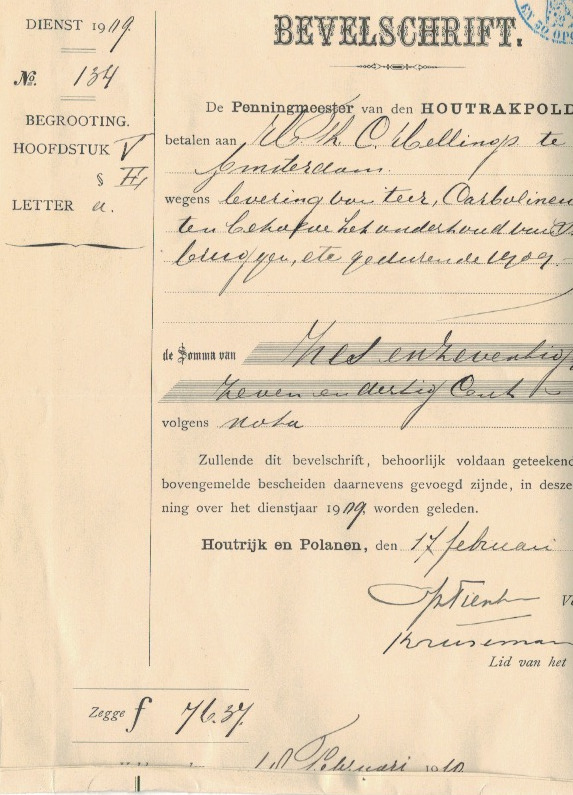 DIENST 1909.
No. 134
BEGROOTING.
HOOFDSTUK V
§ II
LETTER a.
BEVELSCHRIFT.
De Penningmeester van den HOUTRAKPOLD
betalen aan H. Th. C. Hellings te
Amsterdam.
wegens levering van teer, Carbolineu
ten behoeve het onderhoud van
bruggen, etc gedurende 1909.
de Somma van Zes en zeventig
zeven en dertig Cent
volgens nota
Zullende dit bevelschrift, behoorlijk voldaan geteekend
bovengemelde bescheiden daarnevens gevoegd zijnde, in deze
ning over het dienstjaar 1909, worden geleden.
Houtrijk en Polanen, den 17 februari
Kruseman
Lid van het
Zegge f 76.37
Februari 1910